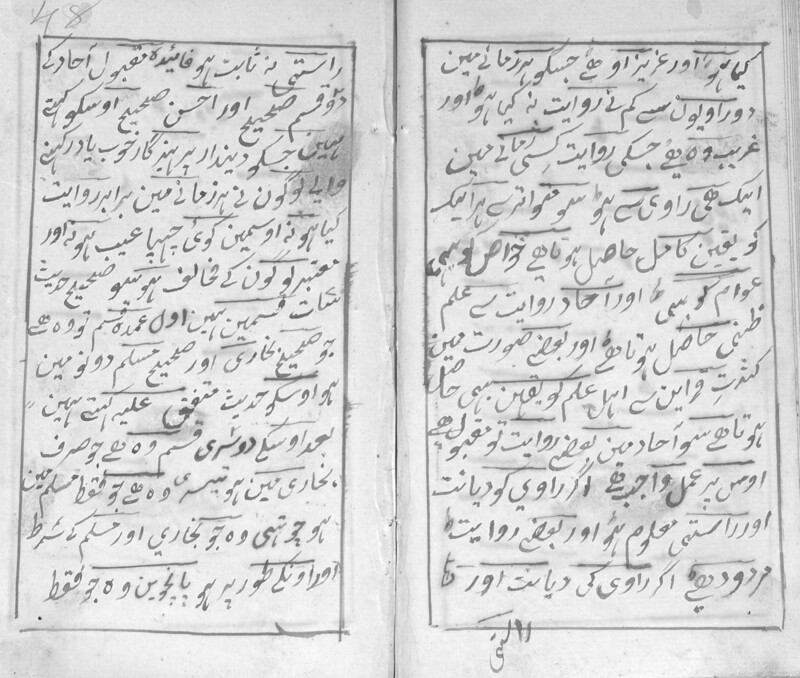 کیا ہو اور عزیز اوہے جسکو ہر زمانے مین
دو راویون سے کم نے روایت نہ کیا ہو اور
غریب وہ ہے جسکی روایت کسی زمانے مین
ایک ہی راوی سے ہو سو متواتر سے ہر ایک
کو یقین کامل حاصل ہوتا ہے خواص کو بہی
عوام کو بہی اور آحاد روایت سے علم
ظنی حاصل ہوتا ہے اور بعضے صورت مین
کثرت قراین سے اہل علم کو یقین بہی حاصل
ہوتا ہے سو آحاد مین بعضے روایت تو مقبول ہے
اوس پر عمل واجب ہے اگر راوی کو دیانت
اور راستی معلوم ہو اور بعضے روایت
مردود ہے اگر راوی کی دیانت اور
راستی
48
راستی نہ ثابت ہو فائیدہ مقبول آحاد کے
دو قسم صحیح اور احسن صحیح اوسکو کہتے
ہیین جسکو دیندار پرہیزگار خوب یاد رکہنے
والے لوگون نے ہر زمانے مین برابر روایت
کیا ہو نہ اوسمین کوئی چہپا عیب ہو نہ اور
معتبر لوگون کے مخالف ہو سو صحیح حدیث
سات قسمین ہین اول عمدہ قسم تو وہ ہے
جو صحیح بخاری اور صحیح مسلم دونو مین
ہو اوسکو حدیث متفق علیہ کہتے ہین
بعد اوسکے دوسری قسم وہ ہے جو صرف
بخاری مین ہو تیسری وہ ہے جو فقط مسلم مین
ہو چوتہی وہ جو بخاري اور مسلم کے شرط
اور اونکے طور پر ہو پانچوین وہ جو فقط